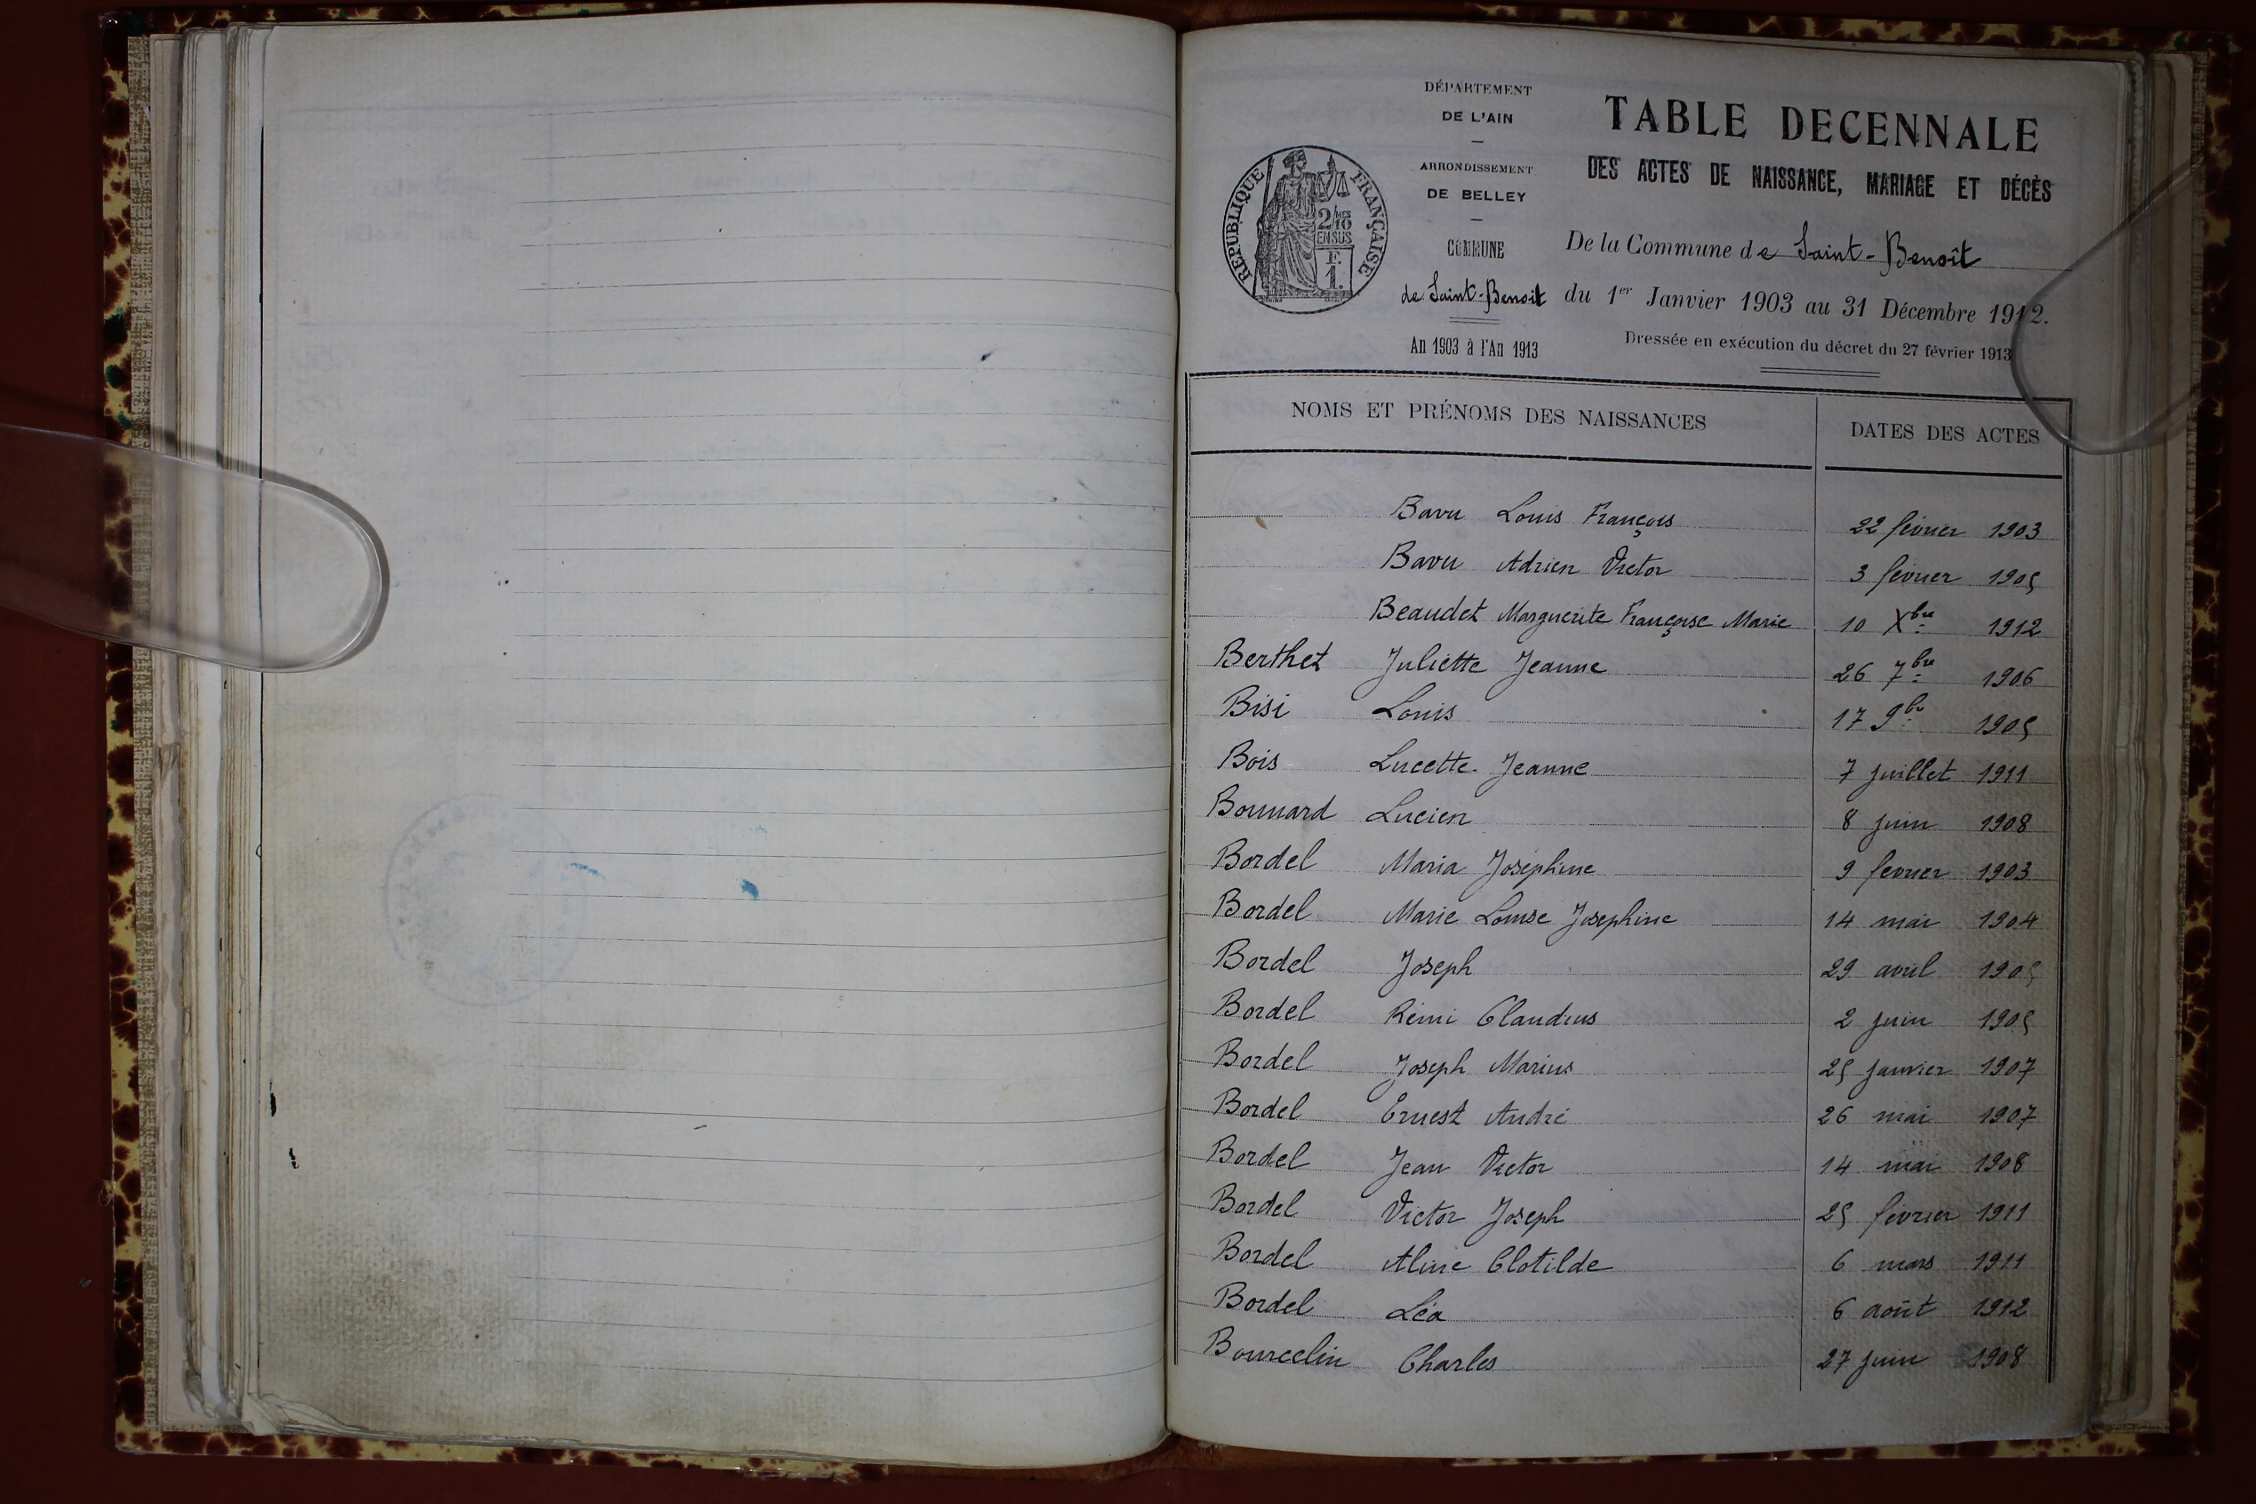 DÉPARTEMENT
DE L'AIN
ARRONDISSEMENT
DE BELLEY
COMMUNE
de Saint-Benoit
An 1903 à l'An 1913
RÉPUBLIQUE FRANÇAISE
2/10
EN SUS
F.
1.
TABLE DECENNALE
DES ACTES DE NAISSANCE, MARIAGE ET DÉCÈS
De la Commune de Saint-Benoît
du 1er Janvier 1903 au 31 Décembre 1912.
Dressée en exécution du décret du 27 février 1913
NOMS ET PRÉNOMS DES NAISSANCES DATES DES ACTES
Bavu Louis François 22 février 1903
Bavu Adrien Victor 3 février 1905
Beaudet Marguerite Françoise Marie 10 Xbre 1912
Berthet Juliette Jeanne 26 7bre 1906
Bisi Louis 17 9bre 1905
Bois Lucette Jeanne 7 juillet 1911
Bonnard Lucien 8 juin 1908
Bordel Maria Joséphine 9 fevrier 1903
Bordel Marie Louise Josephine 14 mai 1904
Bordel Joseph 29 avril 1905
Bordel Rémi Claudius 2 juin 1905
Bordel Joseph Marius 25 janvier 1907
Bordel Ernest André 26 mai 1907
Bordel Jean Victor 14 mai 1908
Bordel Victor Joseph 25 février 1911
Bordel Aline Clotilde 6 mars 1911
Bordel Léa 6 août 1912
Bourcelin Charles 27 juin 1908